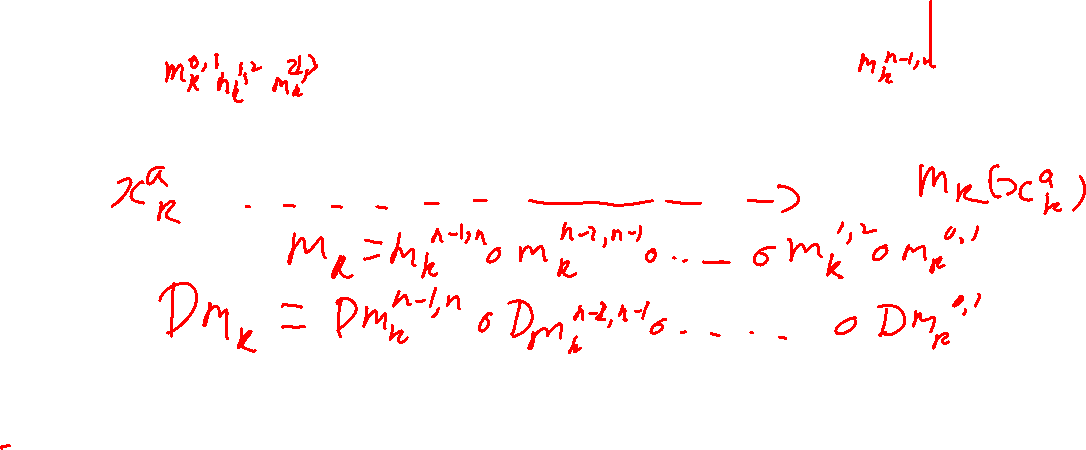 m_k^{0,1} m_k^{1,2} m_k^{2,3} m_k^{n-1,n}
x_k^a - - - - - → m_k(x_k^a)
m_k = m_k^{n-1,n} ∘ m_k^{n-2,n-1} ∘ ... ∘ m_k^{1,2} ∘ m_k^{0,1}
Dm_k = Dm_k^{n-1,n} ∘ Dm_k^{n-2,n-1} ∘ ..... ∘ Dm_k^{0,1}